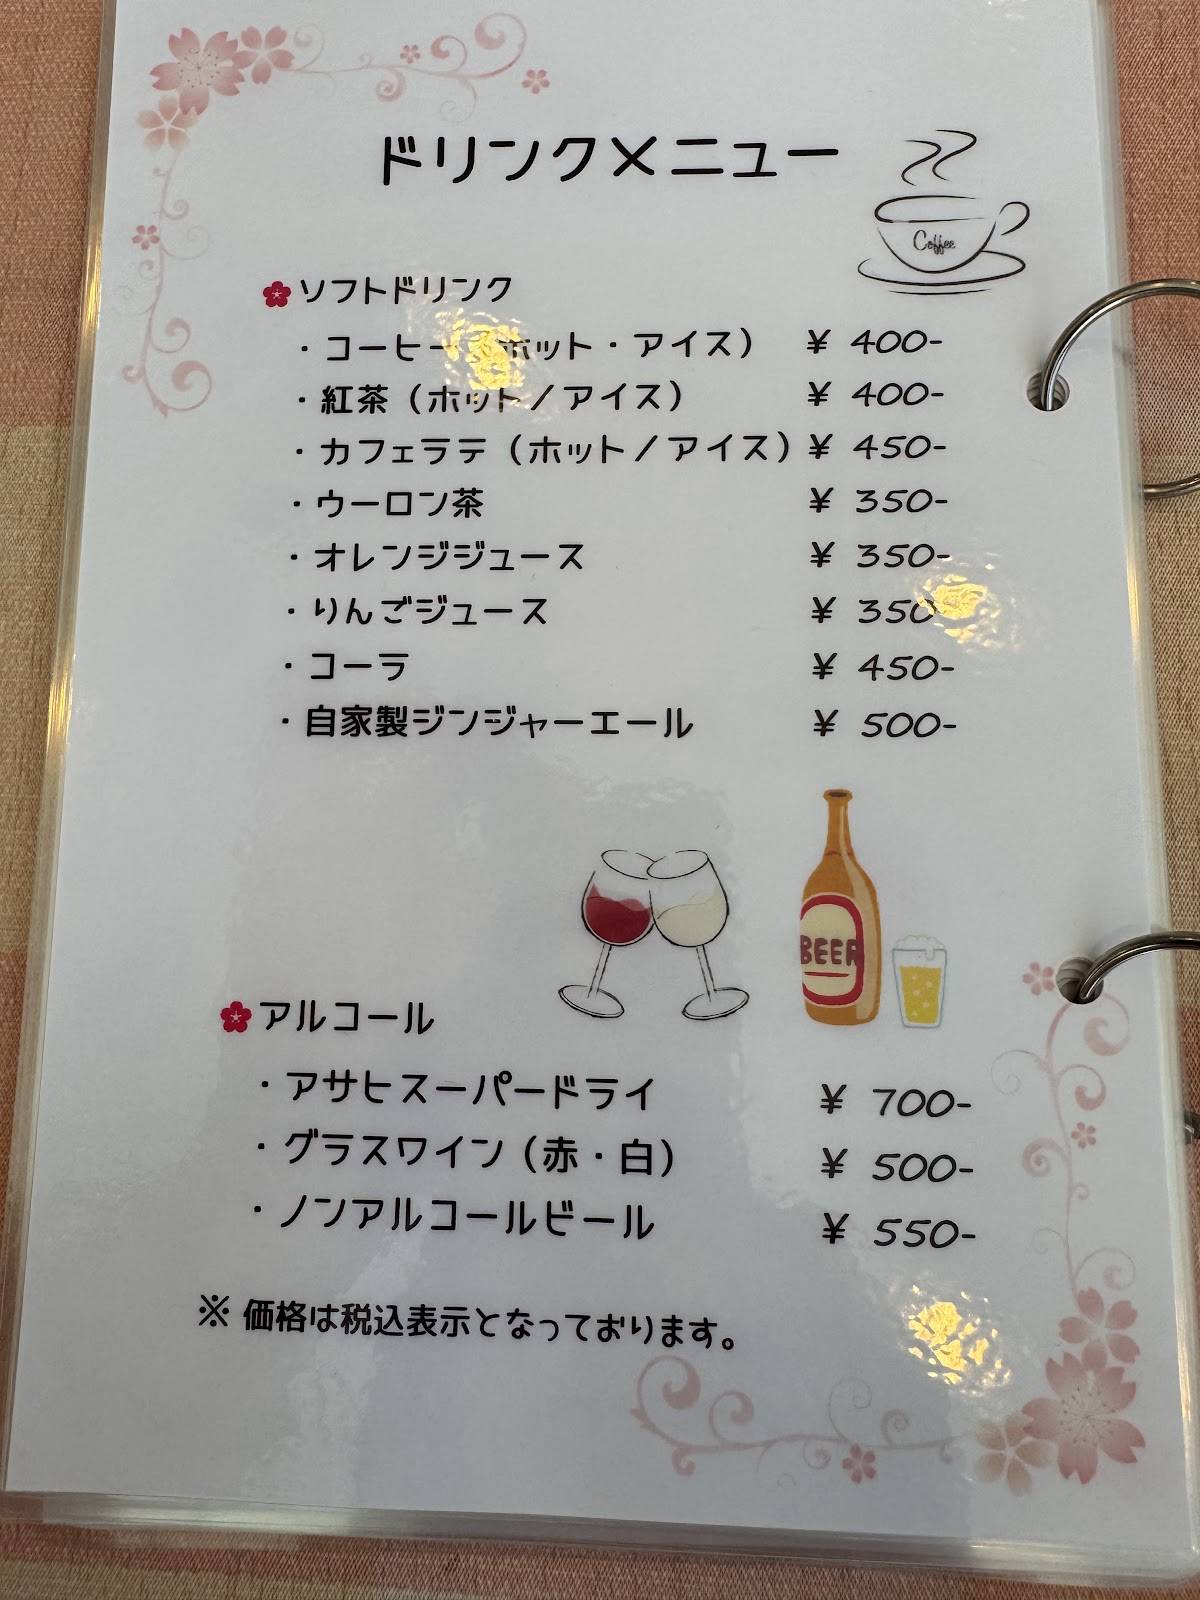 ドリンクメニュー
Coffee
ソフトドリンク
・コーヒー（ホット・アイス） ¥ 400-
・紅茶（ホット／アイス） ¥ 400-
・カフェラテ（ホット／アイス） ¥ 450-
・ウーロン茶 ¥ 350-
・オレンジジュース ¥ 350-
・りんごジュース ¥ 350
・コーラ ¥ 450-
・自家製ジンジャーエール ¥ 500-
BEER
アルコール
・アサヒスーパードライ ¥ 700-
・グラスワイン（赤・白） ¥ 500-
・ノンアルコールビール ¥ 550-
※ 価格は税込表示となっております。